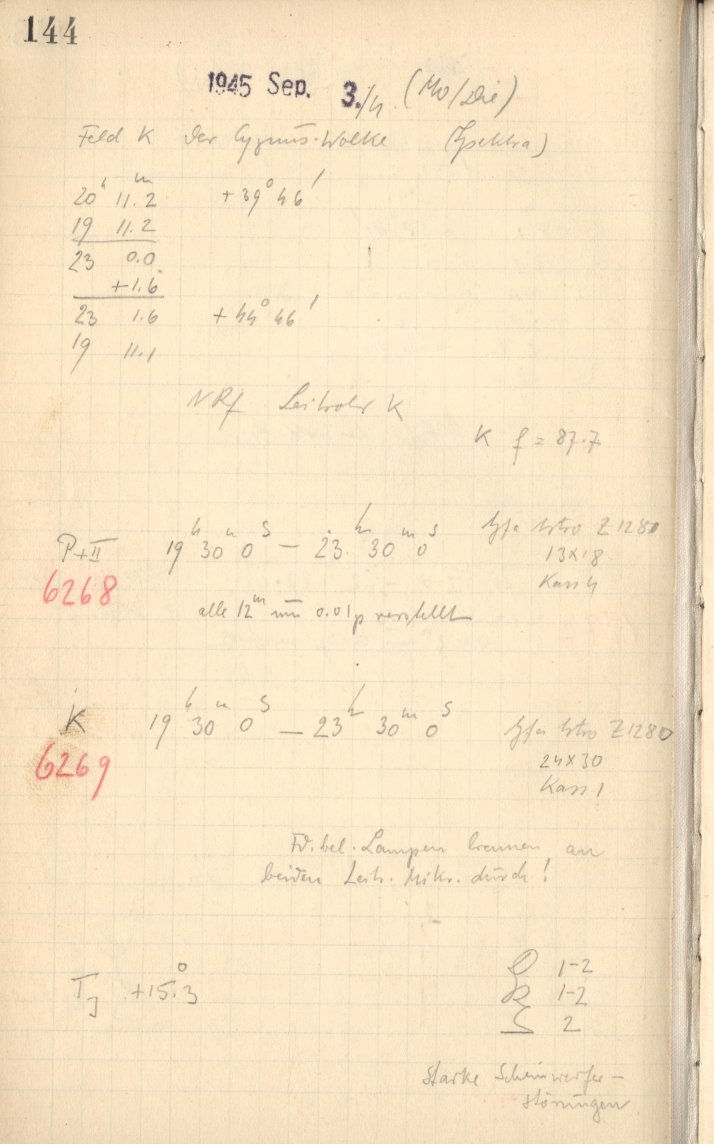 144
1945 Sep. 3./4. (Mo/Die)
Feld K der Cygnus-Wolke (Spektra)
20ʰ 11.2ᵐ +39° 46'
19 11.2
23 0.0
+1.6
23 1.6 +44° 46'
19 11.1
Leitrohr K
K f = 87.7
P+II 19ʰ 30ᵐ 0ˢ — 23ʰ 30ᵐ 0ˢ Agfa Astro Z 1280
13×18
6268 Kass 4
alle 12ᵐ um 0.01p verstellt
K 19ʰ 30ᵐ 0ˢ — 23ʰ 30ᵐ 0ˢ Agfa Astro Z 1280
6269 24×30
Kass 1
Fd. bel. Lampen brennen an
beiden Leitr. Mikr. durch!
1-2
+15.°3 1-2
2
Starke Scheinwerfer-
störungen